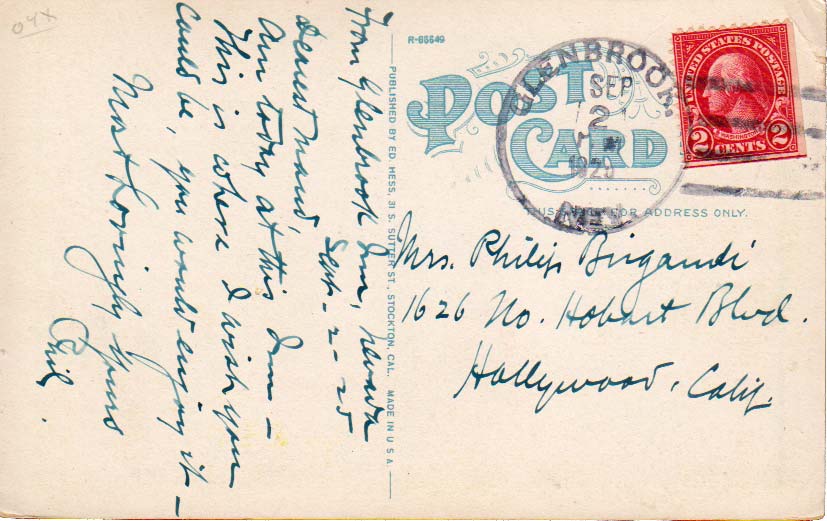 04X
From Glenbrook Inn, Nevada
Sept - 2 - 25
Dearest Maud,
Am today at this Inn -
This is where I wish you
could be, you would enjoy it -
Most Lovingly Yours
Phil.
PUBLISHED BY ED. HESS, 31 S. SUTTER ST., STOCKTON, CAL. MADE IN U.S.A.
R-86649
POST CARD
THIS SIDE FOR ADDRESS ONLY.
GLENBROOK
SEP
2
NEV.
UNITED STATES POSTAGE
WASHINGTON
2 CENTS 2
Mrs. Philip Brigandi
1626 No. Hobart Blvd.
Hollywood, Calif.